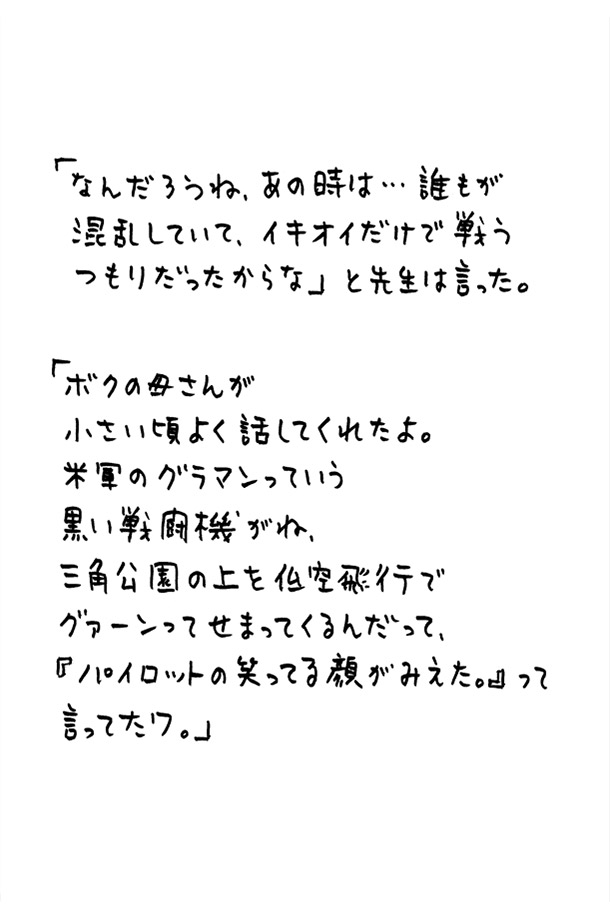 「なんだろうね、あの時は…誰もが
混乱していて、イキオイだけで戦う
つもりだったからな」と先生は言った。
「ボクの母さんが
小さい頃よく話してくれたよ。
米軍のグラマンっていう
黒い戦闘機がね、
三角公園の上を低空飛行で
グァーンってせまってくるんだって、
『パイロットの笑ってる顔がみえた。』って
言ってたワ。」